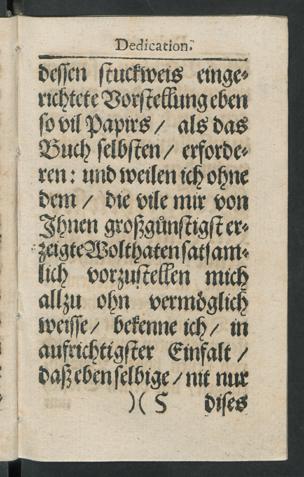 Dedication.
dessen stuckweis einge-
richtete Vorstellung eben
so vil Papirs / als das
Buch selbsten / erforde-
ren: und weilen ich ohne
dem / die vile mir von
Ihnen großgünstigst er-
zeigte Wolthaten satsam-
lich vorzustellen mich
allzu ohn vermöglich
weisse / bekenne ich / in
aufrichtigster Einfalt /
daß eben selbige / nit nur
)( 5 dises